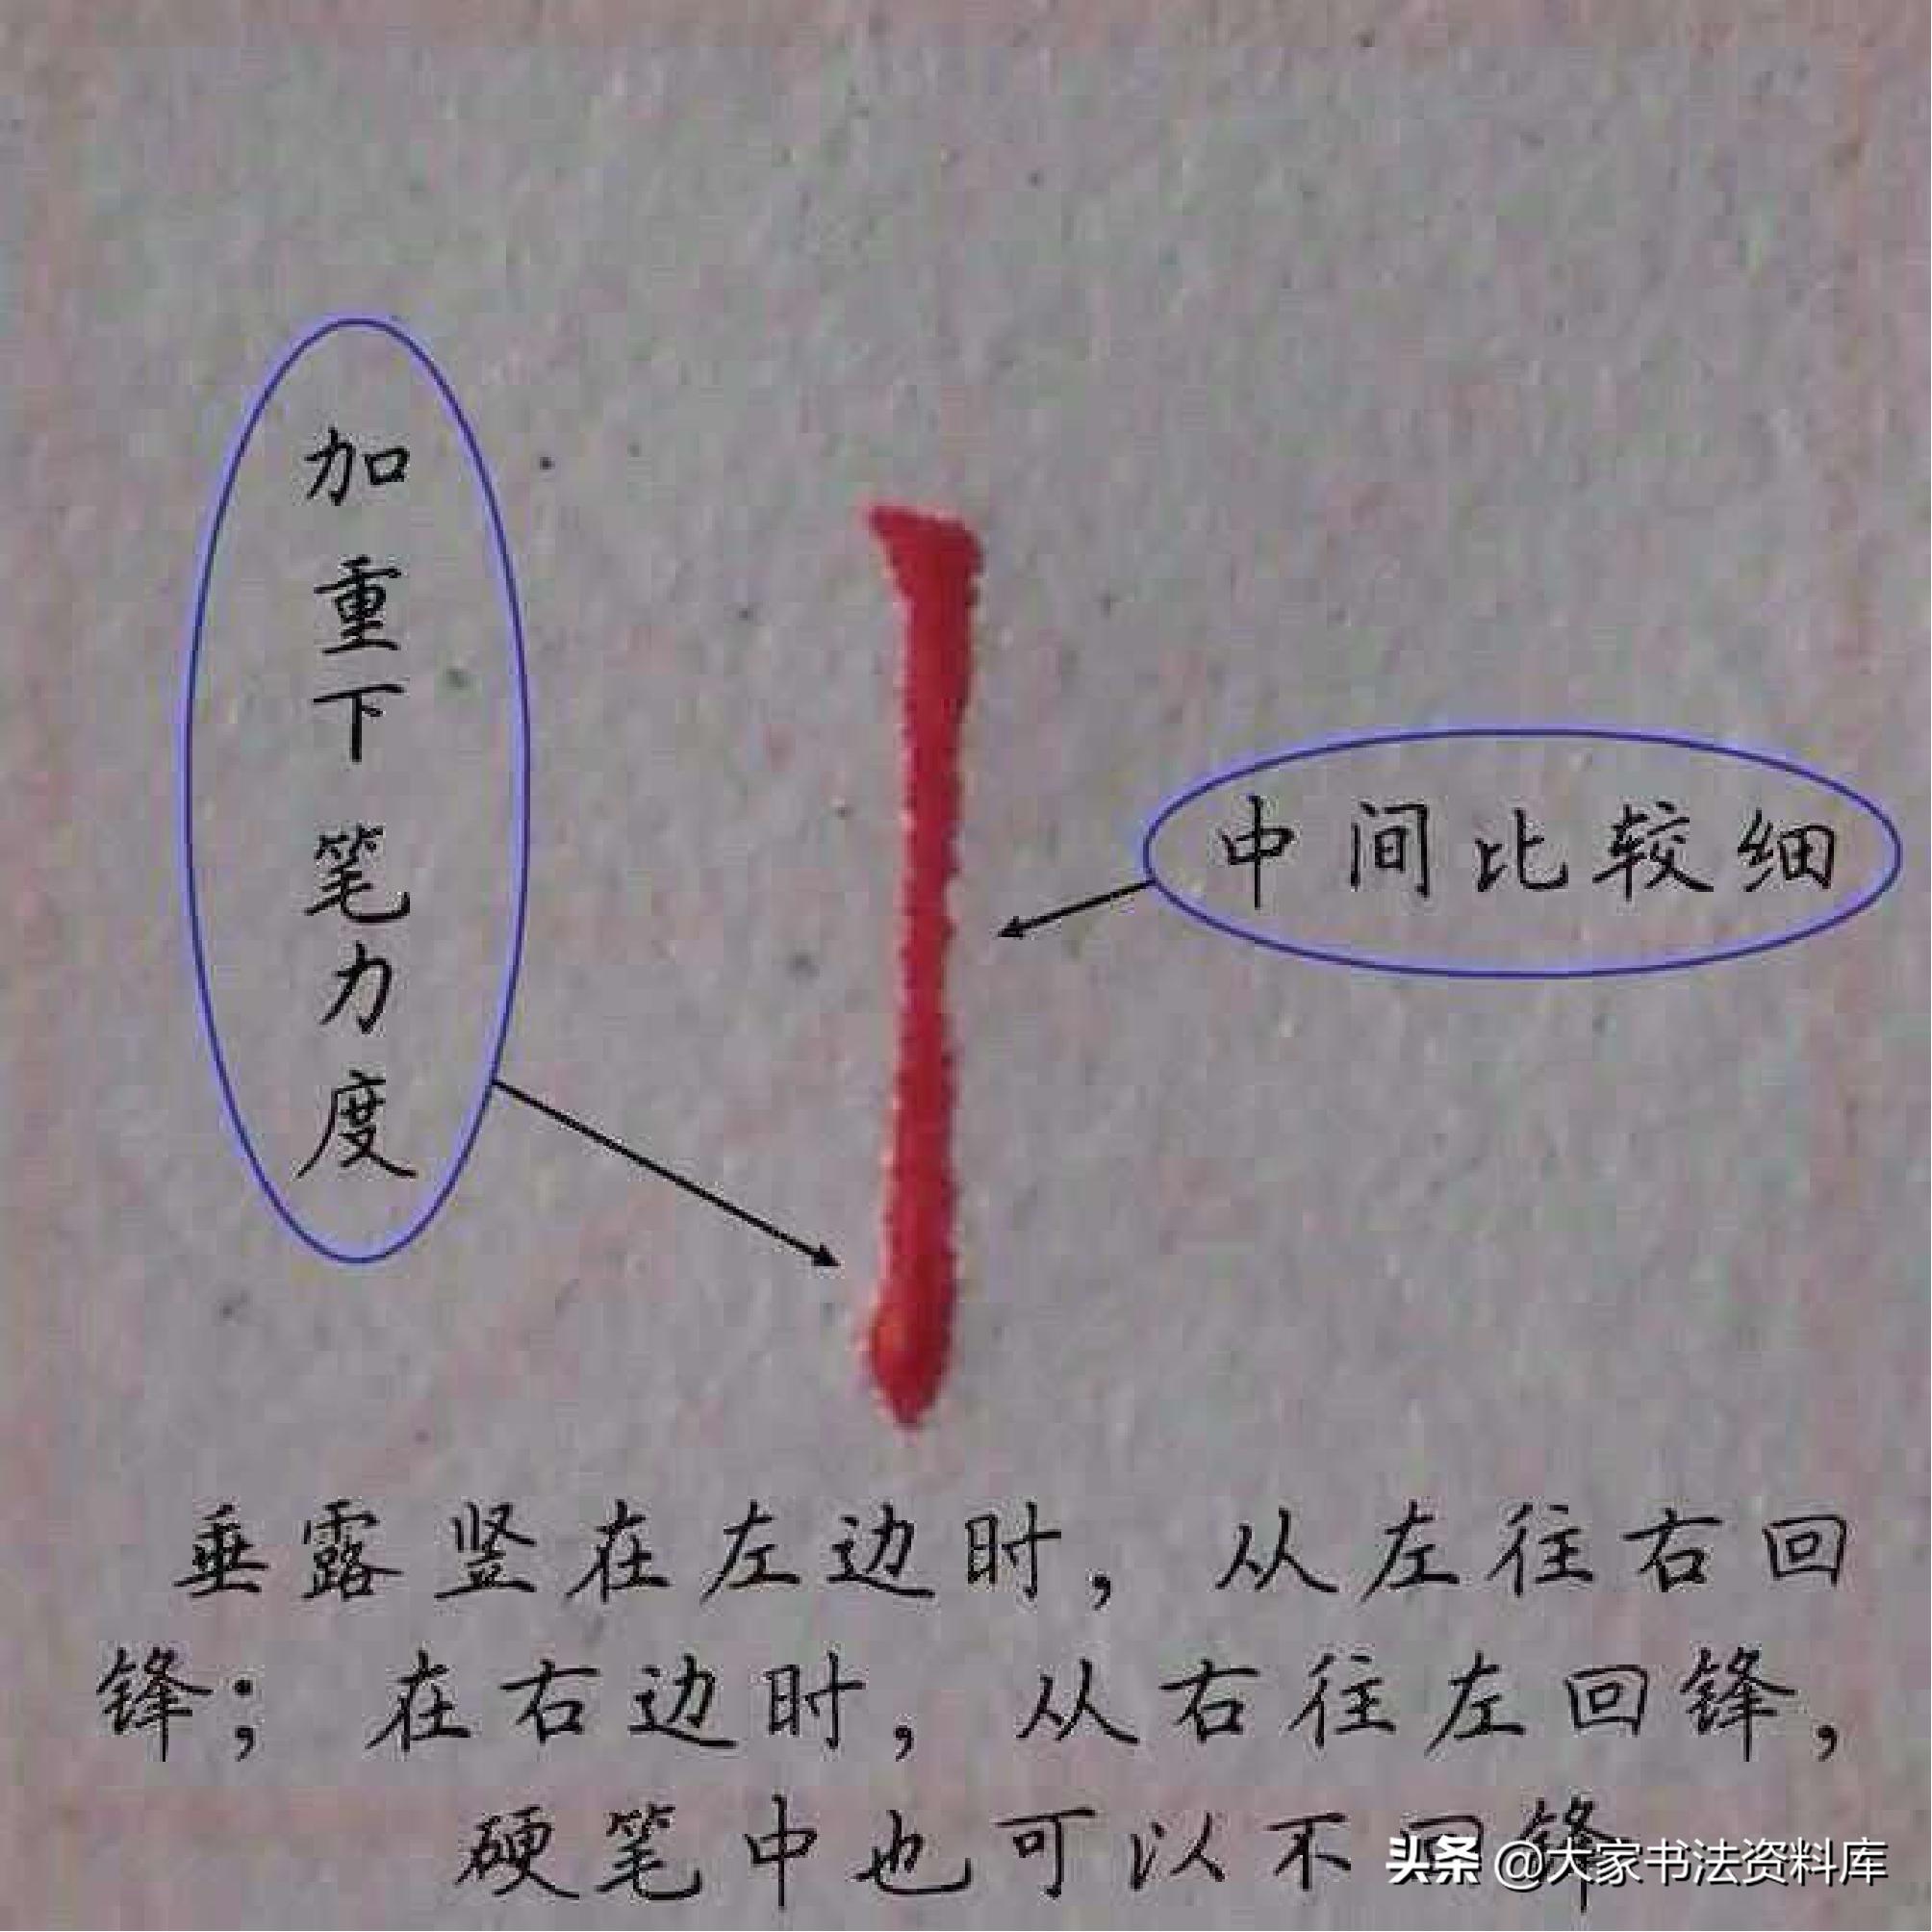 加重下笔力度
中间比较细
垂露竖在左边时，从左往右回
锋；在右边时，从右往左回锋，
硬笔中也可以不回锋
头条 @大家书法资料库